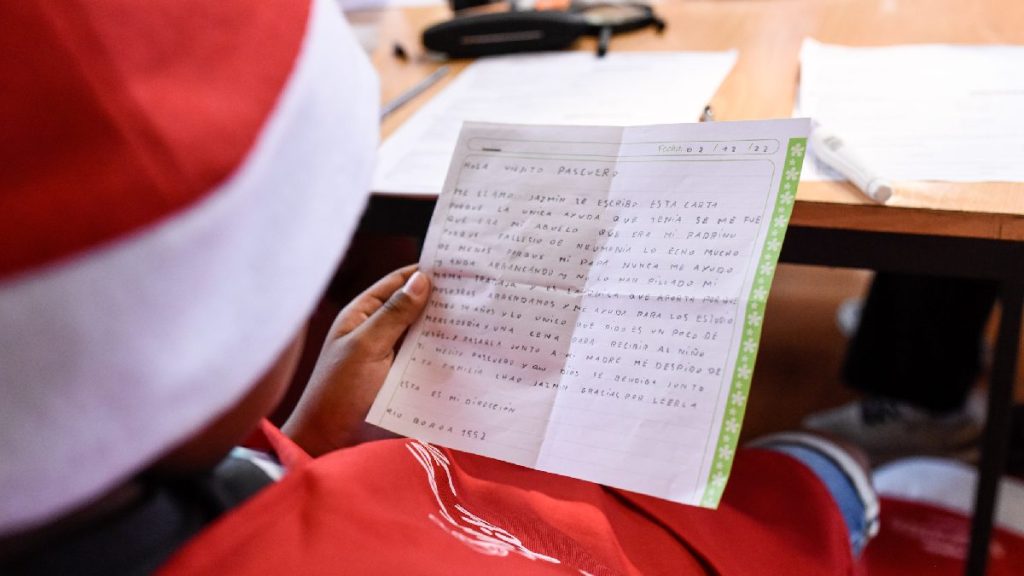 Fecha: 02 / 12 / 22
HOLA VIEJITO PASCUERO
ME LLAMO JAZMIN LE ESCRIBO ESTA CARTA
PORQUE LA UNICA AYUDA QUE TENIA SE ME FUE
QUE ERA MI ABUELO QUE ERA MI PADRINO
PORQUE FALLECIO DE NEUMONIA LO ECHO MUCHO
DE MENOS PORQUE MI PAPÁ NUNCA ME AYUDO
Y ANDA ARRANCANDO Y NO LO HAN PILLADO MI
MAMÁ TRABAJA Y ES LA UNICA QUE APORTA PORQUE
NOSOTRAS ARRENDAMOS Y ME AYUDA PARA LOS ESTUDIO
TENGO AÑOS Y LO UNICO QUE PIDO ES UN POCO DE
MERCADERIA Y UNA CENA PARA RECIBIR AL NIÑO
JESÚS Y PASARLA JUNTO A MI MADRE ME DESPIDO DE
TI VIEJITO PASCUERO Y QUE DIOS SE BENDIGA JUNTO
A TU FAMILIA CHAO JAZMIN GRACIAS POR LEERLA
ESTA ES MI DIRECCION
RIO BOROA 1552